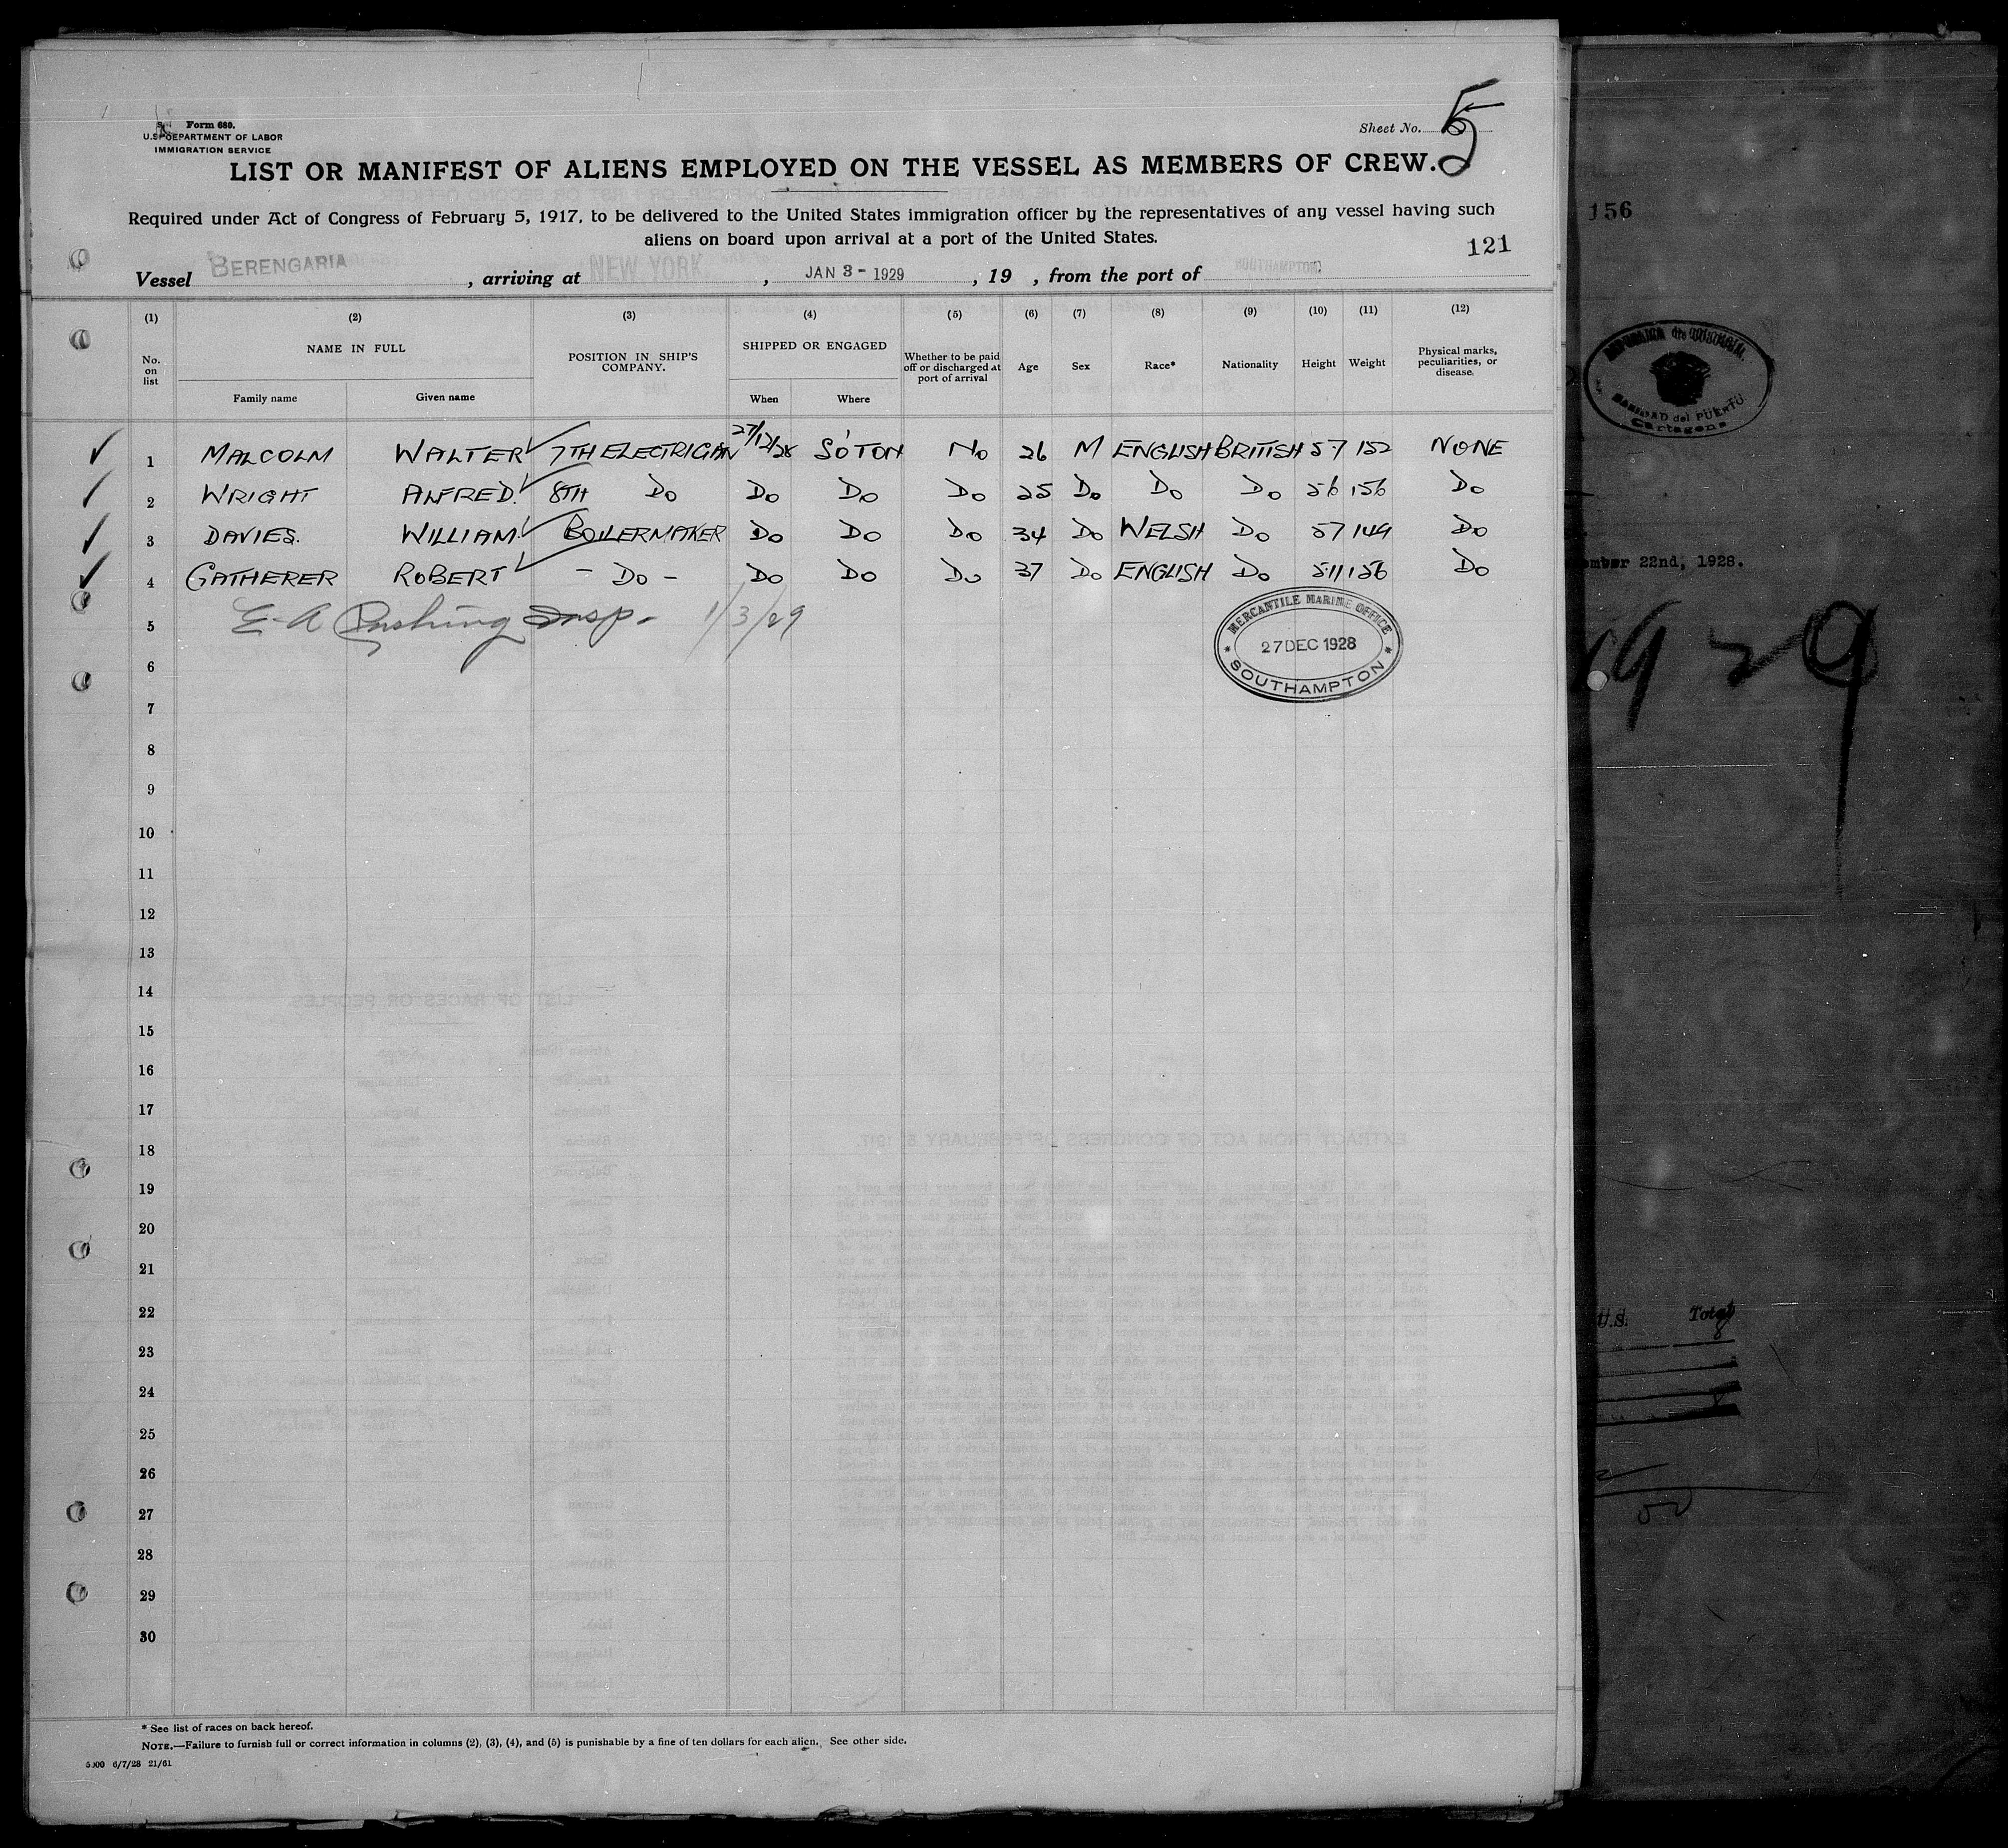 Form 680.
U.S. DEPARTMENT OF LABOR
IMMIGRATION SERVICE
Sheet No. 5
LIST OR MANIFEST OF ALIENS EMPLOYED ON THE VESSEL AS MEMBERS OF CREW.
Required under Act of Congress of February 5, 1917, to be delivered to the United States immigration officer by the representatives of any vessel having such
aliens on board upon arrival at a port of the United States.
121
Vessel BERENGARIA, arriving at NEW YORK, JAN 3 - 1929, 19 , from the port of SOUTHAMPTON
(1) (2) (3) (4) (5) (6) (7) (8) (9) (10) (11) (12)
No. on list NAME IN FULL Family name Given name POSITION IN SHIP'S COMPANY. SHIPPED OR ENGAGED When Where Whether to be paid off or discharged at port of arrival Age Sex Race* Nationality Height Weight Physical marks, peculiarities, or disease.
1 MALCOLM WALTER 7TH ELECTRICIAN 27/12/28 SO'TON No 26 M ENGLISH BRITISH 5 7 152 NONE
2 WRIGHT ALFRED. 8TH Do Do Do Do 25 Do Do Do 5 6 156 Do
3 DAVIES. WILLIAM BOILERMAKER Do Do Do 34 Do WELSH Do 5 7 149 Do
4 GATHERER ROBERT - Do - Do Do Do 37 Do ENGLISH Do 5 11 156 Do
5 E. A. Cushing Insp. 1/3/29
MERCANTILE MARINE OFFICE
27 DEC 1928
SOUTHAMPTON
6
7
8
9
10
11
12
13
14
15
16
17
18
19
20
21
22
23
24
25
26
27
28
29
30
* See list of races on back hereof.
NOTE.—Failure to furnish full or correct information in columns (2), (3), (4), and (5) is punishable by a fine of ten dollars for each alien. See other side.
5000 6/7/28 21/61
156
SANIDAD del PUERTO
Cartagena
22nd, 1928.
U.S. Total